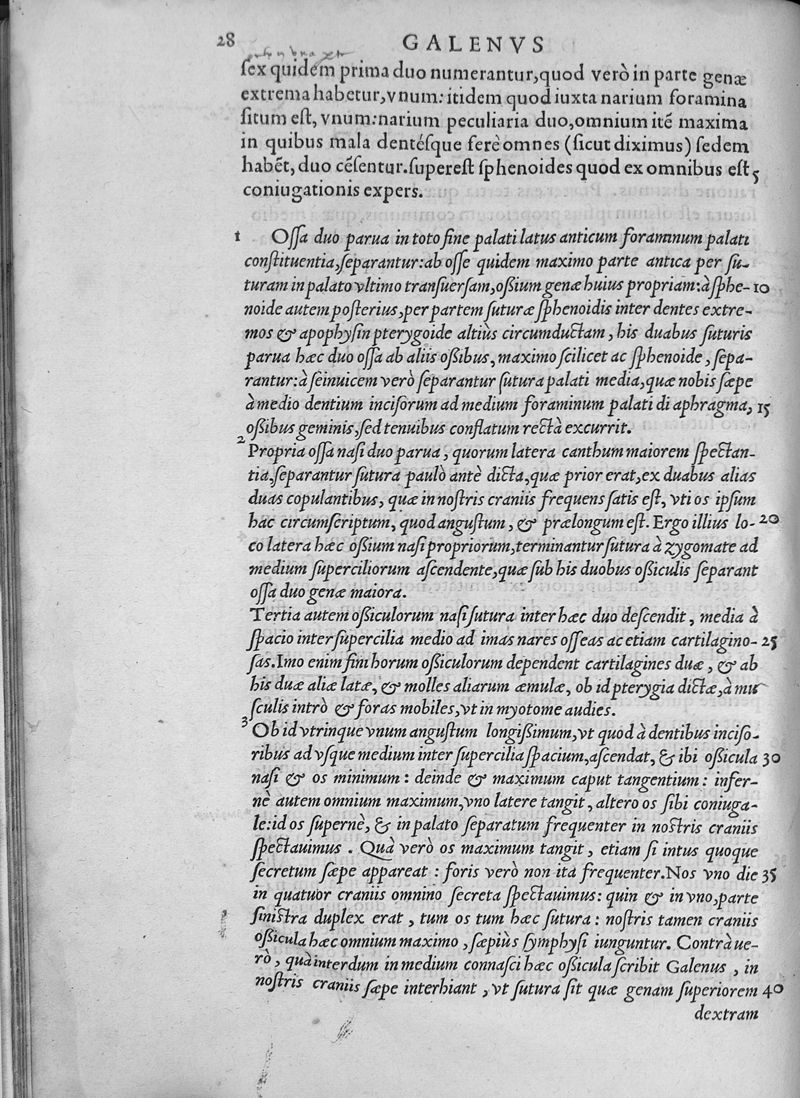 28 GALENVS
ſex quidem prima duo numerantur, quod verò in parte genæ
extrema habetur, vnum: itidem quod iuxta narium foramina
ſitum eſt, vnum: narium peculiaria duo, omnium itē maxima
in quibus mala dentéſque ferè omnes (ſicut diximus) ſedem
habēt, duo cēſentur. ſupereſt ſphenoides quod ex omnibus eſt 5
coniugationis expers.
1 Oſſa duo parua in toto fine palati latus anticum foraminum palati
conſtituentia, ſeparantur: ab oſſe quidem maximo parte antica per ſu-
turam in palato vltimo tranſuerſam, oſsium genæ huius propriam: à ſphe- 10
noide autem poſterius, per partem ſuturæ ſphenoidis inter dentes extre-
mos & apophyſin pterygoide altiùs circumductam, his duabus ſuturis
parua hæc duo oſſa ab aliis oſsibus, maximo ſcilicet ac ſphenoide, ſepa-
rantur: à ſeinuicem verò ſeparantur ſutura palati media, quæ nobis ſæpe
à medio dentium inciſorum ad medium foraminum palati diaphragma, 15
oſsibus geminis, ſed tenuibus conflatum rectà excurrit.
2 Propria oſſa naſi duo parua, quorum latera canthum maiorem ſpectan-
tia, ſeparantur ſutura paulò antè dicta, quæ prior erat, ex duabus alias
duas copulantibus, quæ in noſtris craniis frequens ſatis eſt, vti os ipſum
hac circumſcriptum, quod anguſtum, & prælongum eſt. Ergo illius lo- 20
co latera hæc oſsium naſi propriorum, terminantur ſutura à zygomate ad
medium ſuperciliorum aſcendente, quæ ſub his duobus oſsiculis ſeparant
oſſa duo genæ maiora.
Tertia autem oſsiculorum naſi ſutura inter hæc duo deſcendit, media à
ſpacio inter ſupercilia medio ad imas nares oſſeas ac etiam cartilagino- 25
ſas. Imo enim fini horum oſsiculorum dependent cartilagines duæ, & ab
his duæ aliæ latæ, & molles aliarum æmulæ, ob id pterygia dictæ, à mu
ſculis intrò & foras mobiles, vt in myotome audies.
3 Ob id vtrinque vnum anguſtum longiſsimum, vt quod à dentibus inciſo-
ribus ad vſque medium inter ſupercilia ſpacium, aſcendat, & ibi oſsicula 30
naſi & os minimum: deinde & maximum caput tangentium: infer-
nè autem omnium maximum, vno latere tangit, altero os ſibi coniuga-
le: id os ſupernè, & in palato ſeparatum frequenter in noſtris craniis
ſpectauimus. Quà verò os maximum tangit, etiam ſi intus quoque
ſecretum ſæpe appareat: foris verò non ita frequenter. Nos vno die 35
in quatuor craniis omnino ſecreta ſpectauimus: quin & in vno, parte
ſiniſtra duplex erat, tum os tum hæc ſutura: noſtris tamen craniis
oſsicula hæc omnium maximo, ſæpiùs ſymphyſi iunguntur. Contrà ue-
rò, quà interdum in medium connaſci hæc oſsicula ſcribit Galenus, in
noſtris craniis ſæpe interhiant, vt ſutura ſit quæ genam ſuperiorem 40
dextram